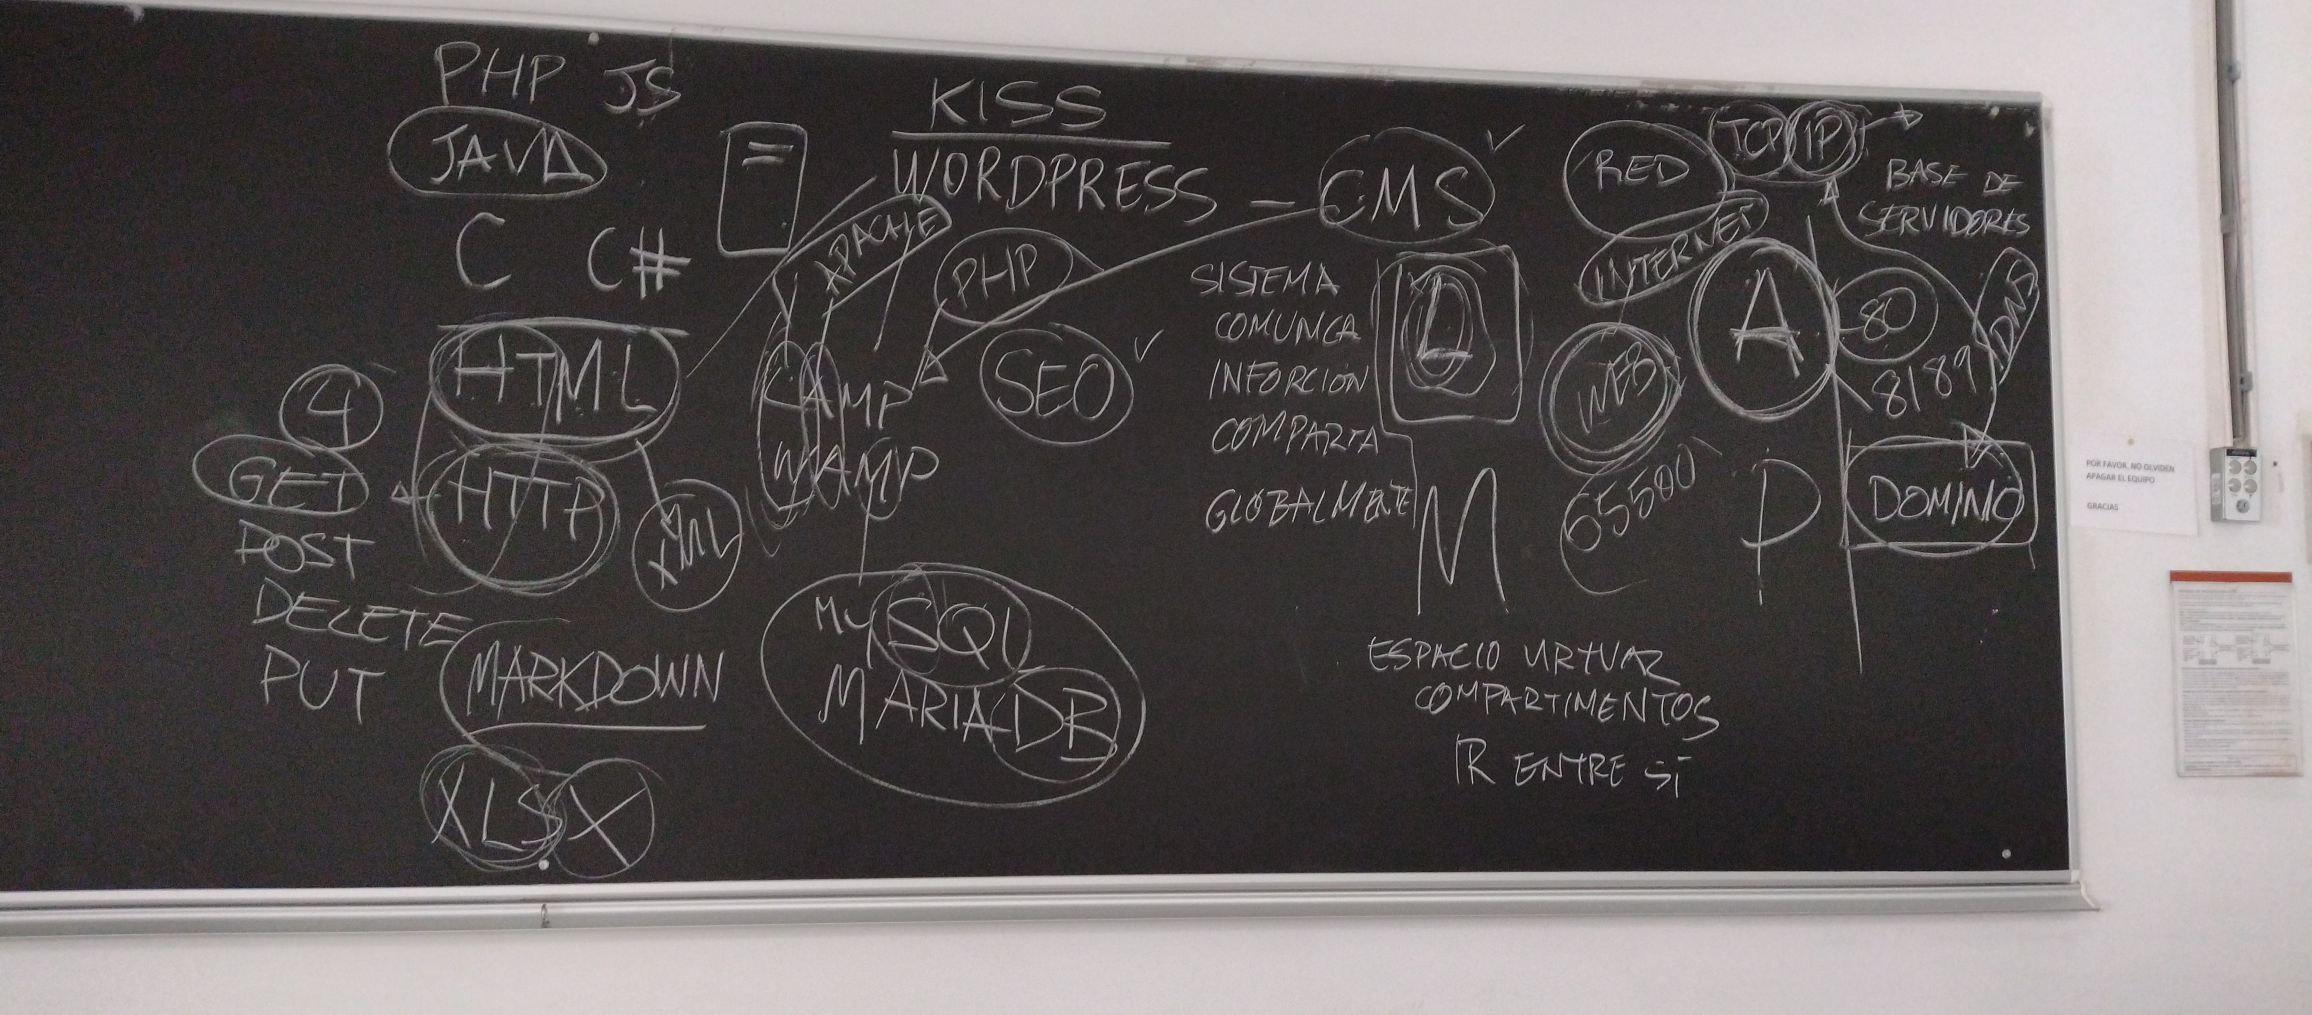 PHP JS
JAVA
C C#
HTML
HTTP
XML
4
GET
POST
DELETE
PUT
MARKDOWN
XLSX
KISS
WORDPRESS - CMS
APACHE
PHP
SEO
LAMP
WAMP
MySQL
MARIADB
SISTEMA
COMUNICA
INFORCIÓN
COMPARTA
GLOBALMENTE
RED
TCP IP
INTERNET
WEB
BASE DE
SERVIDORES
L
A
M
P
80
8189
65500
DNS
DOMINIO
ESPACIO
COMPARTIMENTOS
IR ENTRE SÍ
POR FAVOR, NO OLVIDEN
APAGAR EL EQUIPO
GRACIAS